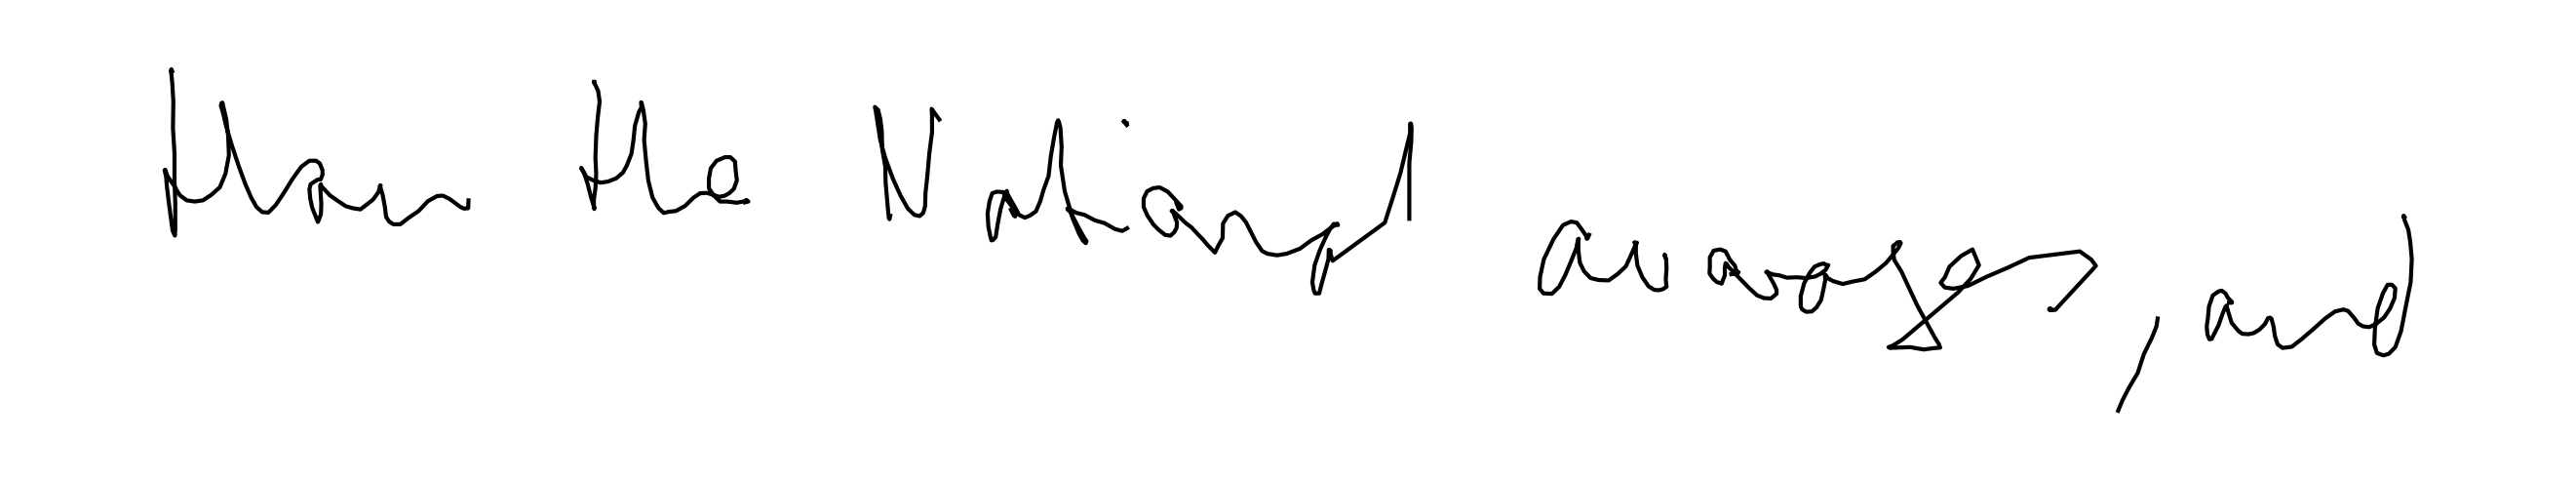 than the National averages, and